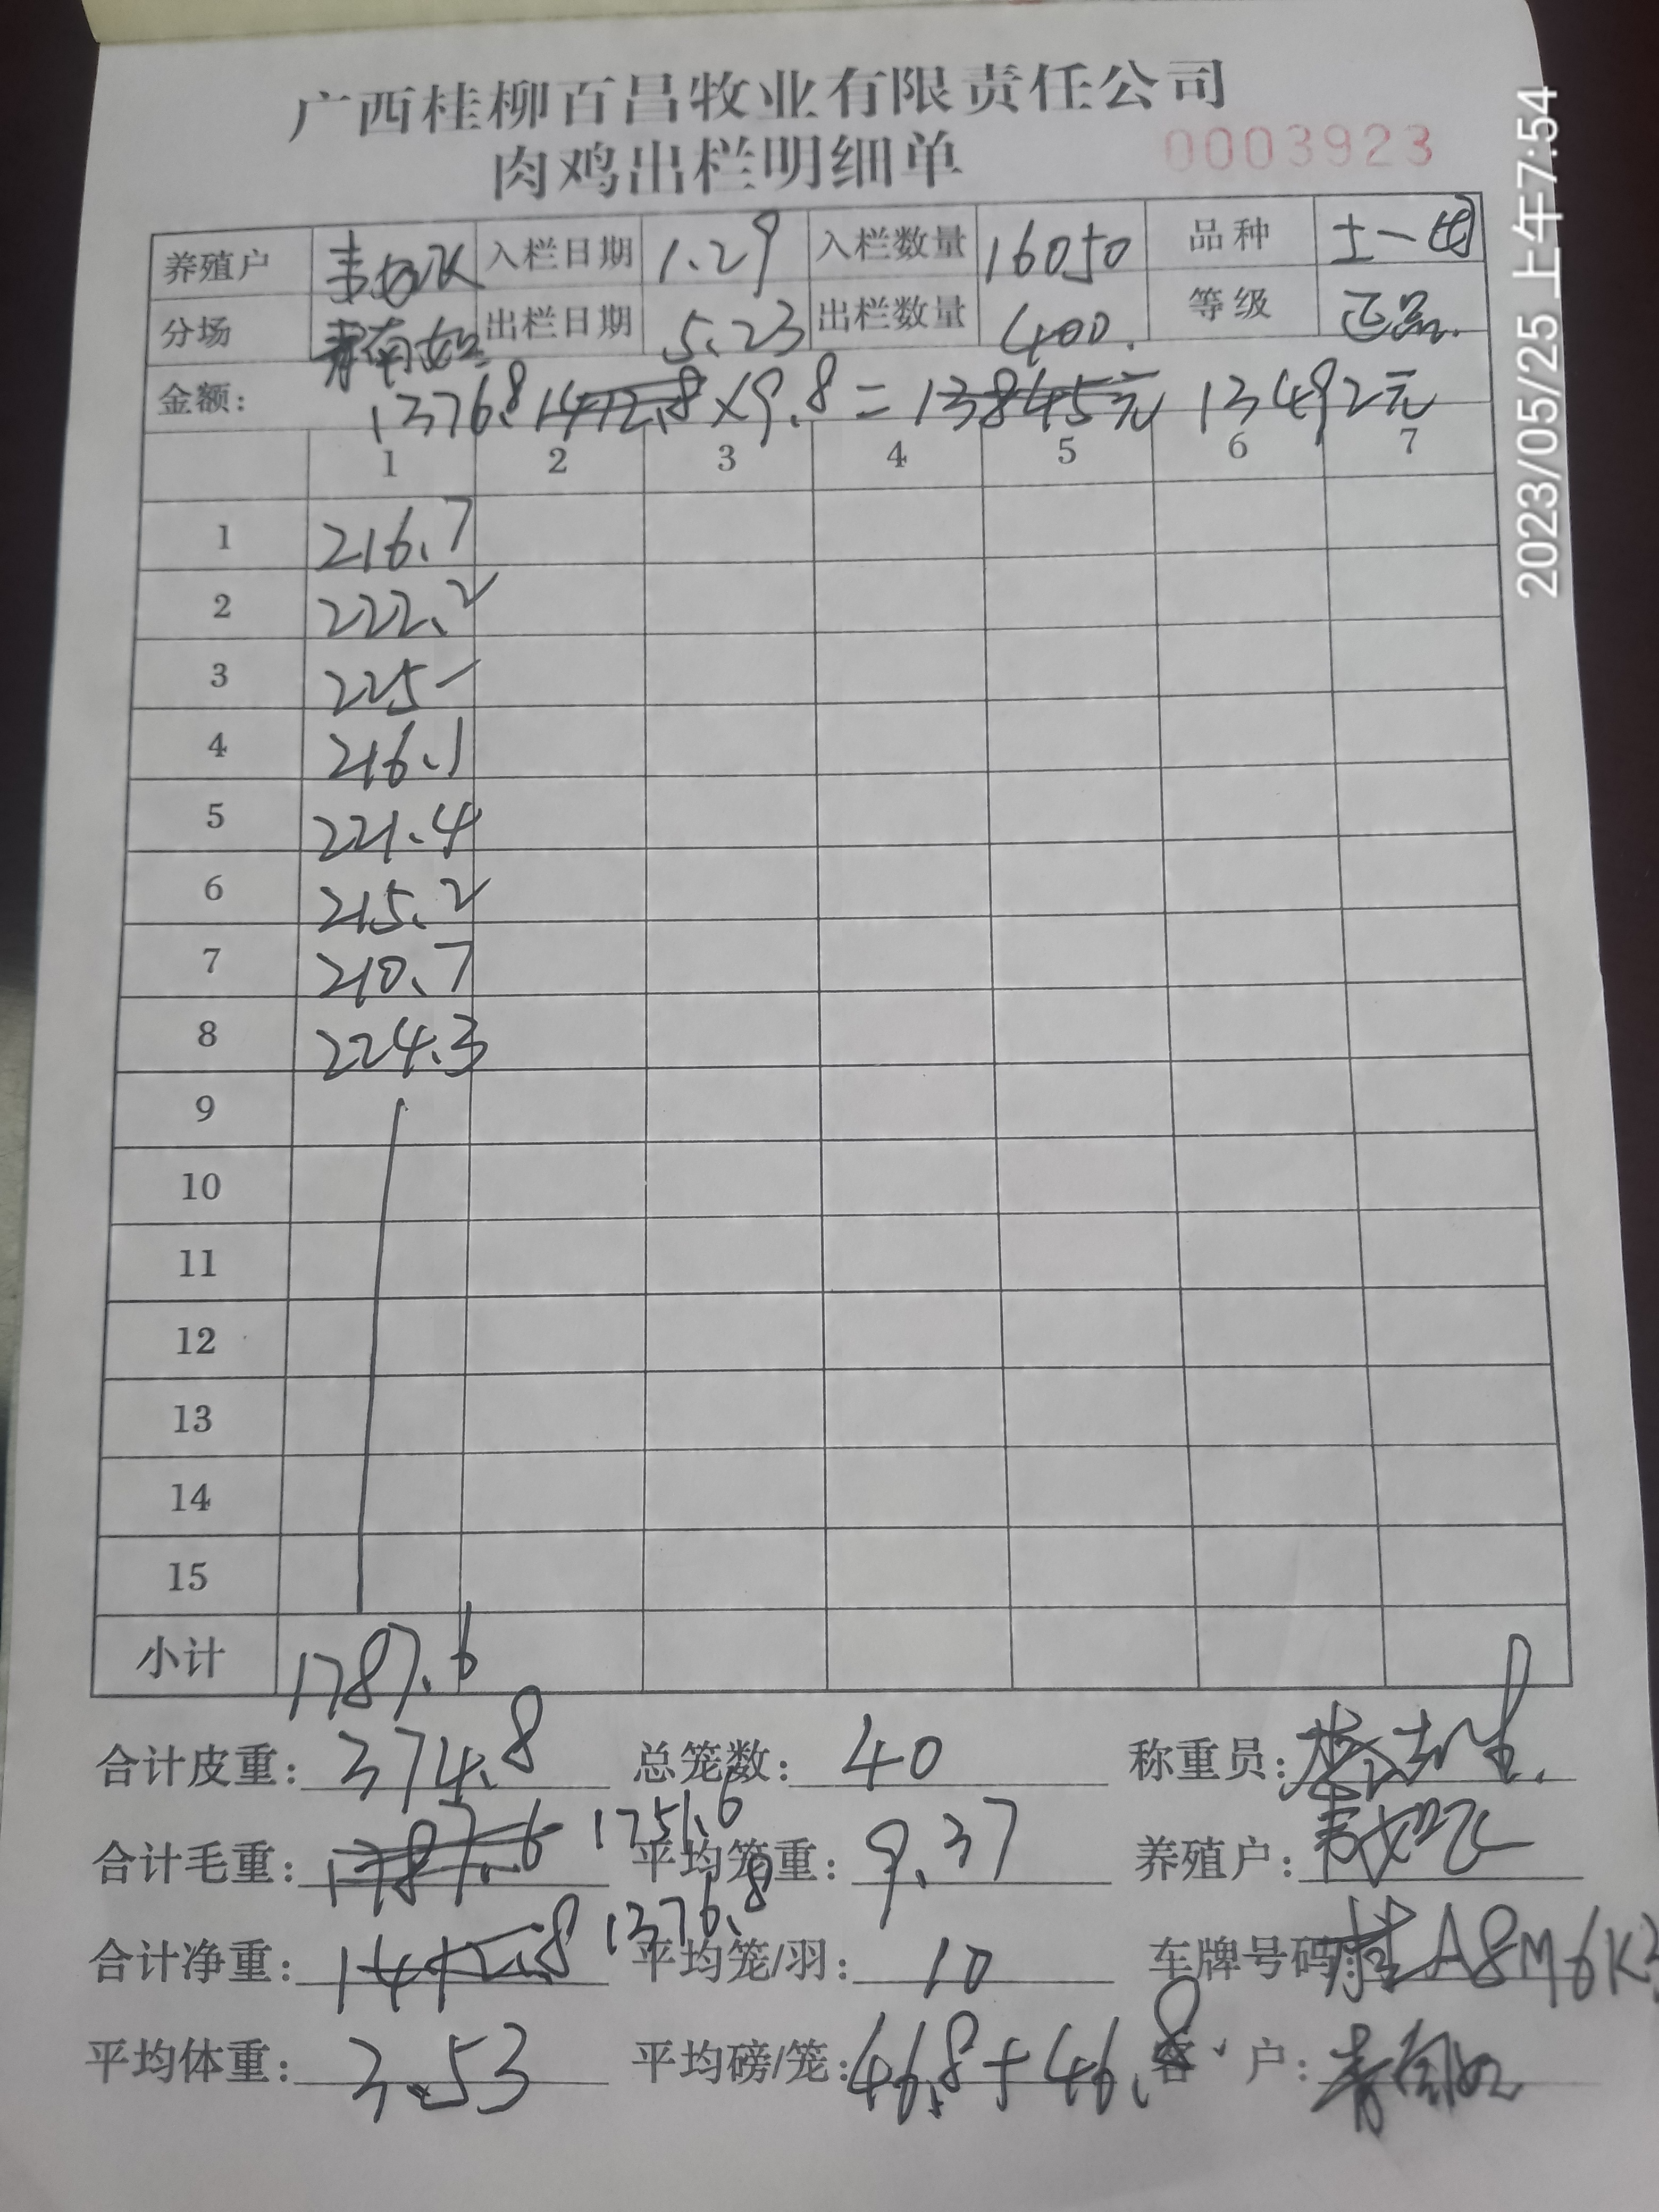 广西桂柳百昌牧业有限责任公司
肉鸡出栏明细单 0003923
养殖户 入栏日期 1.29 入栏数量 16050 品种 土一
分场 出栏日期 5.23 出栏数量 400. 等级 正品.
金额: 1376.8 1412.8×9.8=13845元 13492元
1 2 3 4 5 6 7
1 216.7
2 222.2
3 225-
4 216.1
5 221.4
6 215.2
7 210.7
8 224.3
9
10
11
12
13
14
15
小计 1787.6
合计皮重: 374.8 总笼数: 40 称重员:
合计毛重: 1787.6 1751.6 平均笼重: 9.37 养殖户:
合计净重: 1412.8 1376.8 平均笼/羽: 10 车牌号码 桂A8M6K3
平均体重: 3.53 平均磅/笼: 46.8+46.8 客户:
2023/05/25 上午7:54